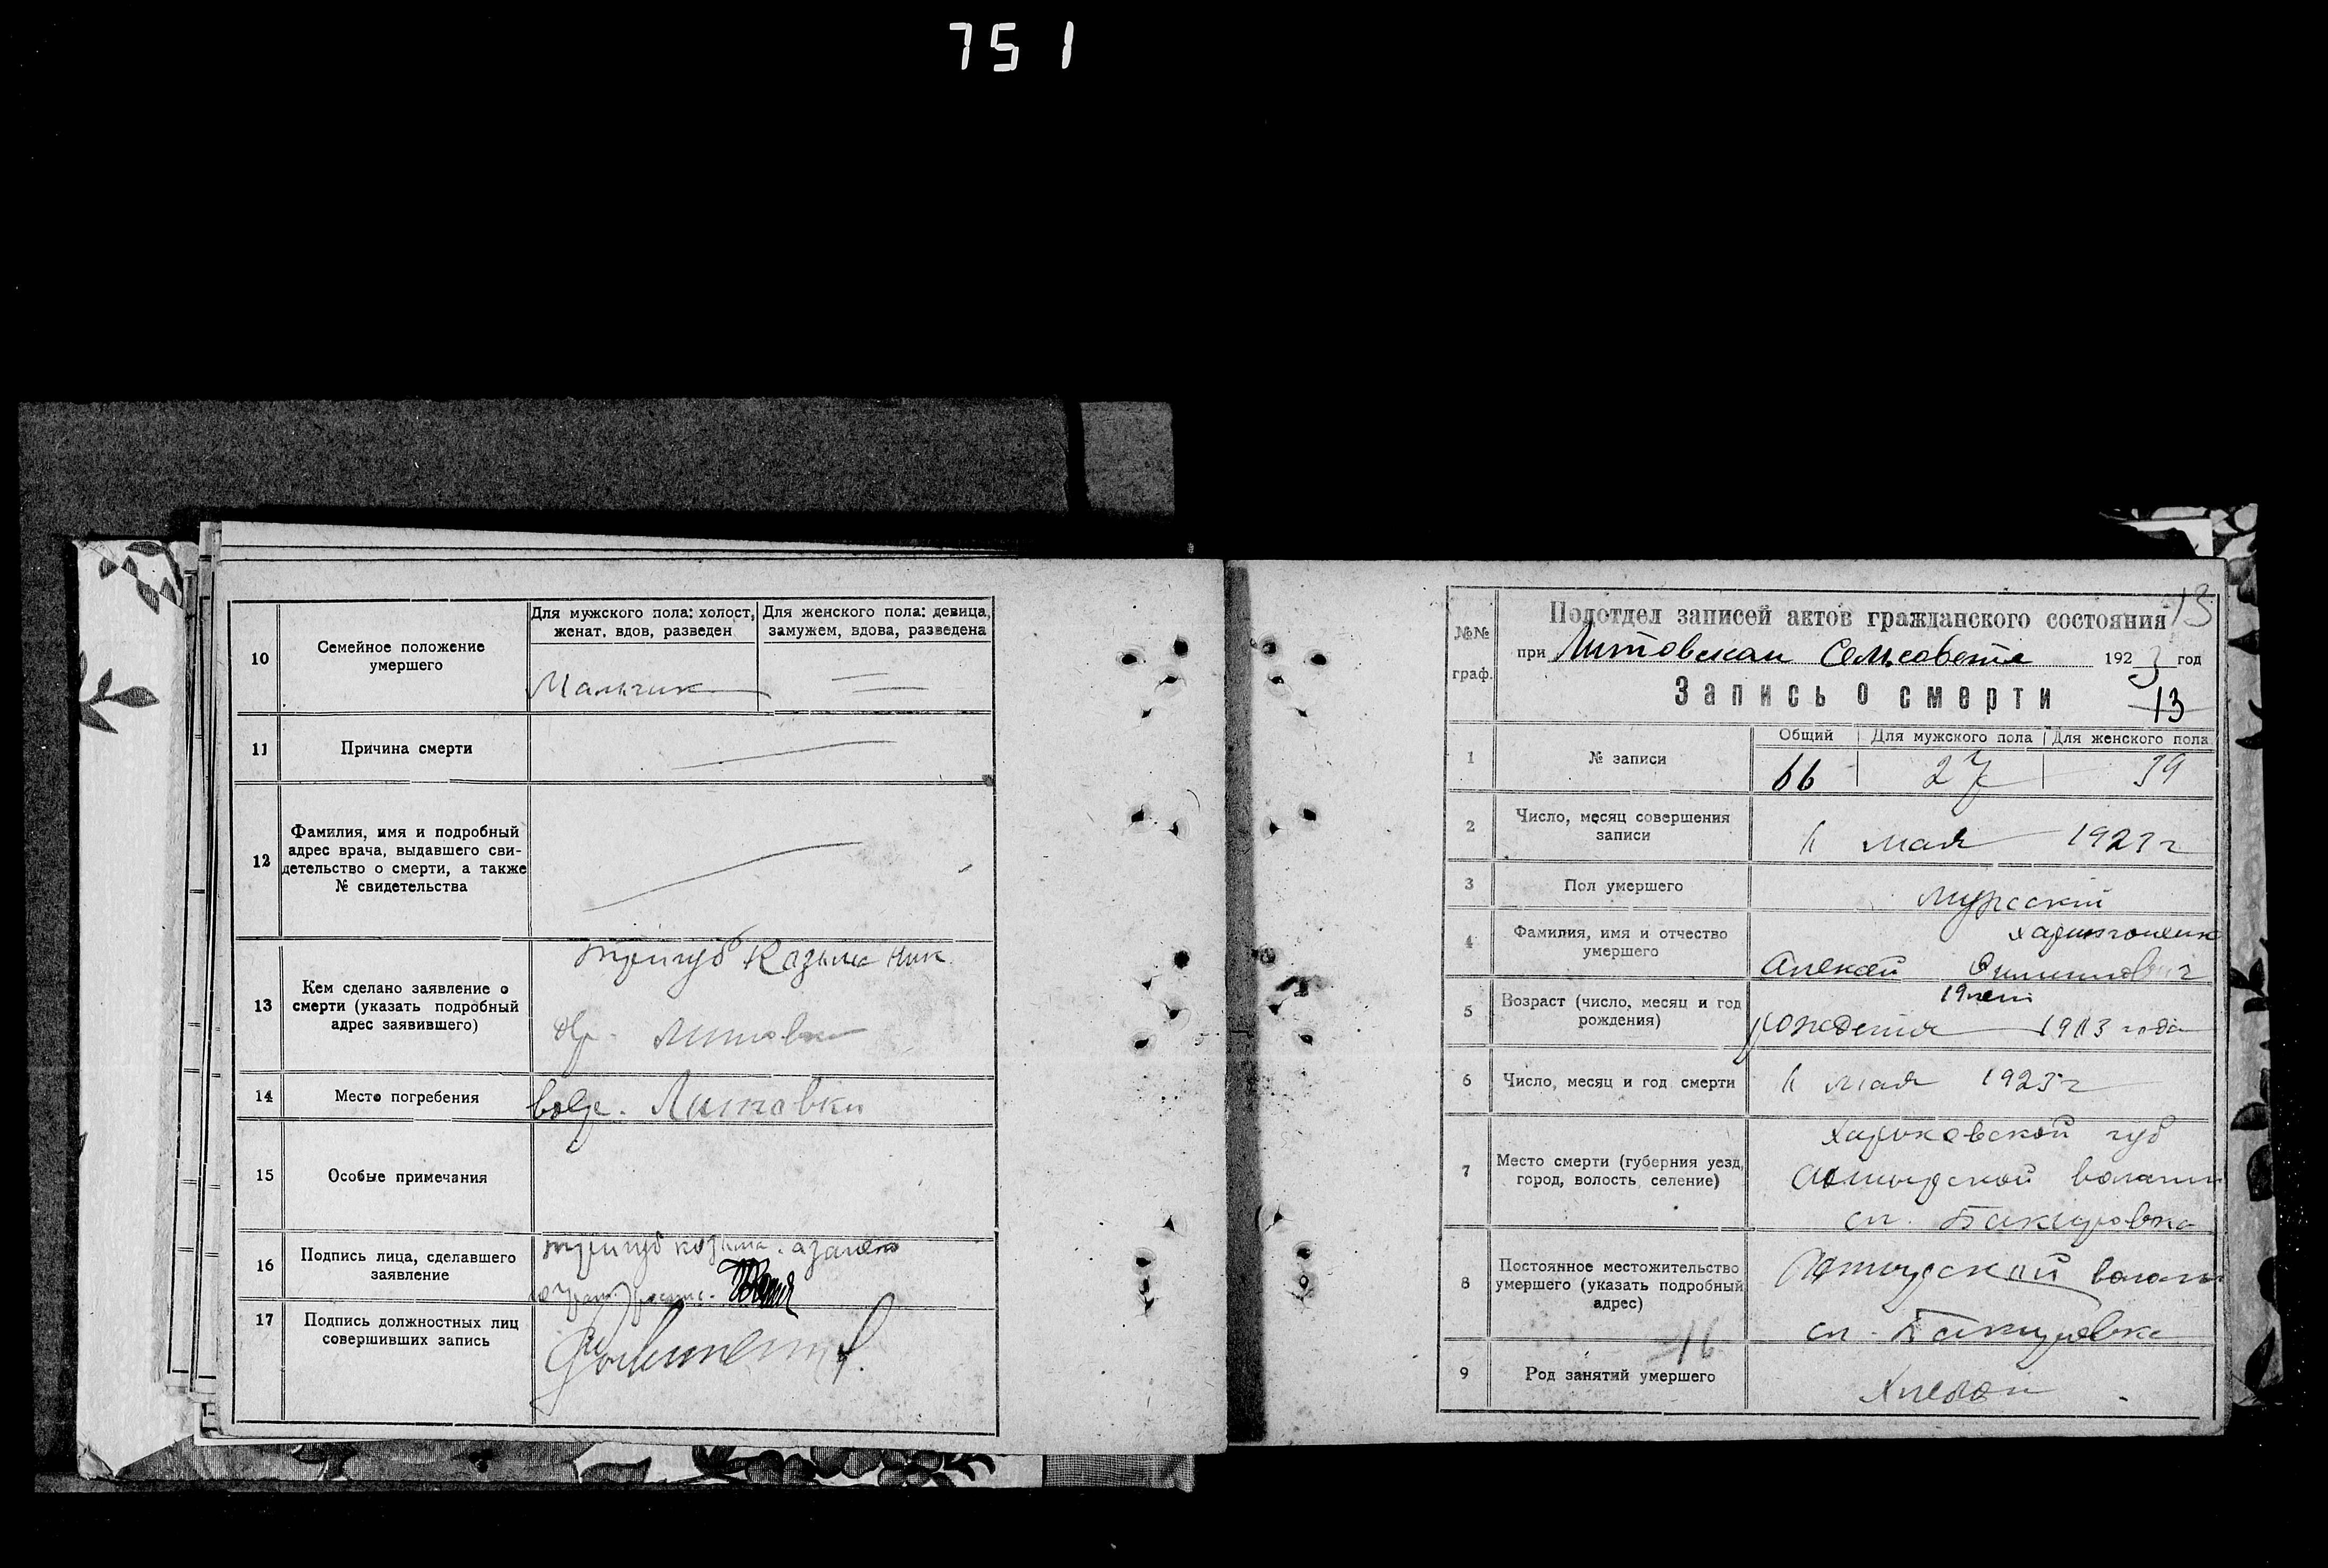 751
10
Семейное положение
умершего
Для мужского пола: холост,
женат, вдов, разведен
Для женского пола: девица,
замужем, вдова, разведена
Мальчик
11
Причина смерти
12
Фамилия, имя и подробный
адрес врача, выдавшего сви-
детельство о смерти, а также
№ свидетельства
13
Кем сделано заявление о
смерти (указать подробный
адрес заявившего)
тригуб Козьма Ник
др. Литовка
14
Место погребения
в др. Литовки
15
Особые примечания
16
Подпись лица, сделавшего
заявление
тригуб козьма
17
Подпись должностных лиц
совершивших запись
13
№№
граф.
Подотдел записей актов гражданского состояния
при Литовском Сельсовете 1923 год
Запись о смерти
13
1
№ записи
Общий
Для мужского пола
Для женского пола
66
27
39
2
Число, месяц совершения
записи
11 мая 1923 г
3
Пол умершего
мужский
4
Фамилия, имя и отчество
умершего
Алексей
5
Возраст (число, месяц и год
рождения)
рождения года
6
Число, месяц и год смерти
11 мая 1923 г
7
Место смерти (губерния уезд,
город, волость селение)
Харьковской губ
волости
сл. Бакировка
8
Постоянное местожительство
умершего (указать подробный
адрес)
сл. Бакировка
16
9
Род занятий умершего